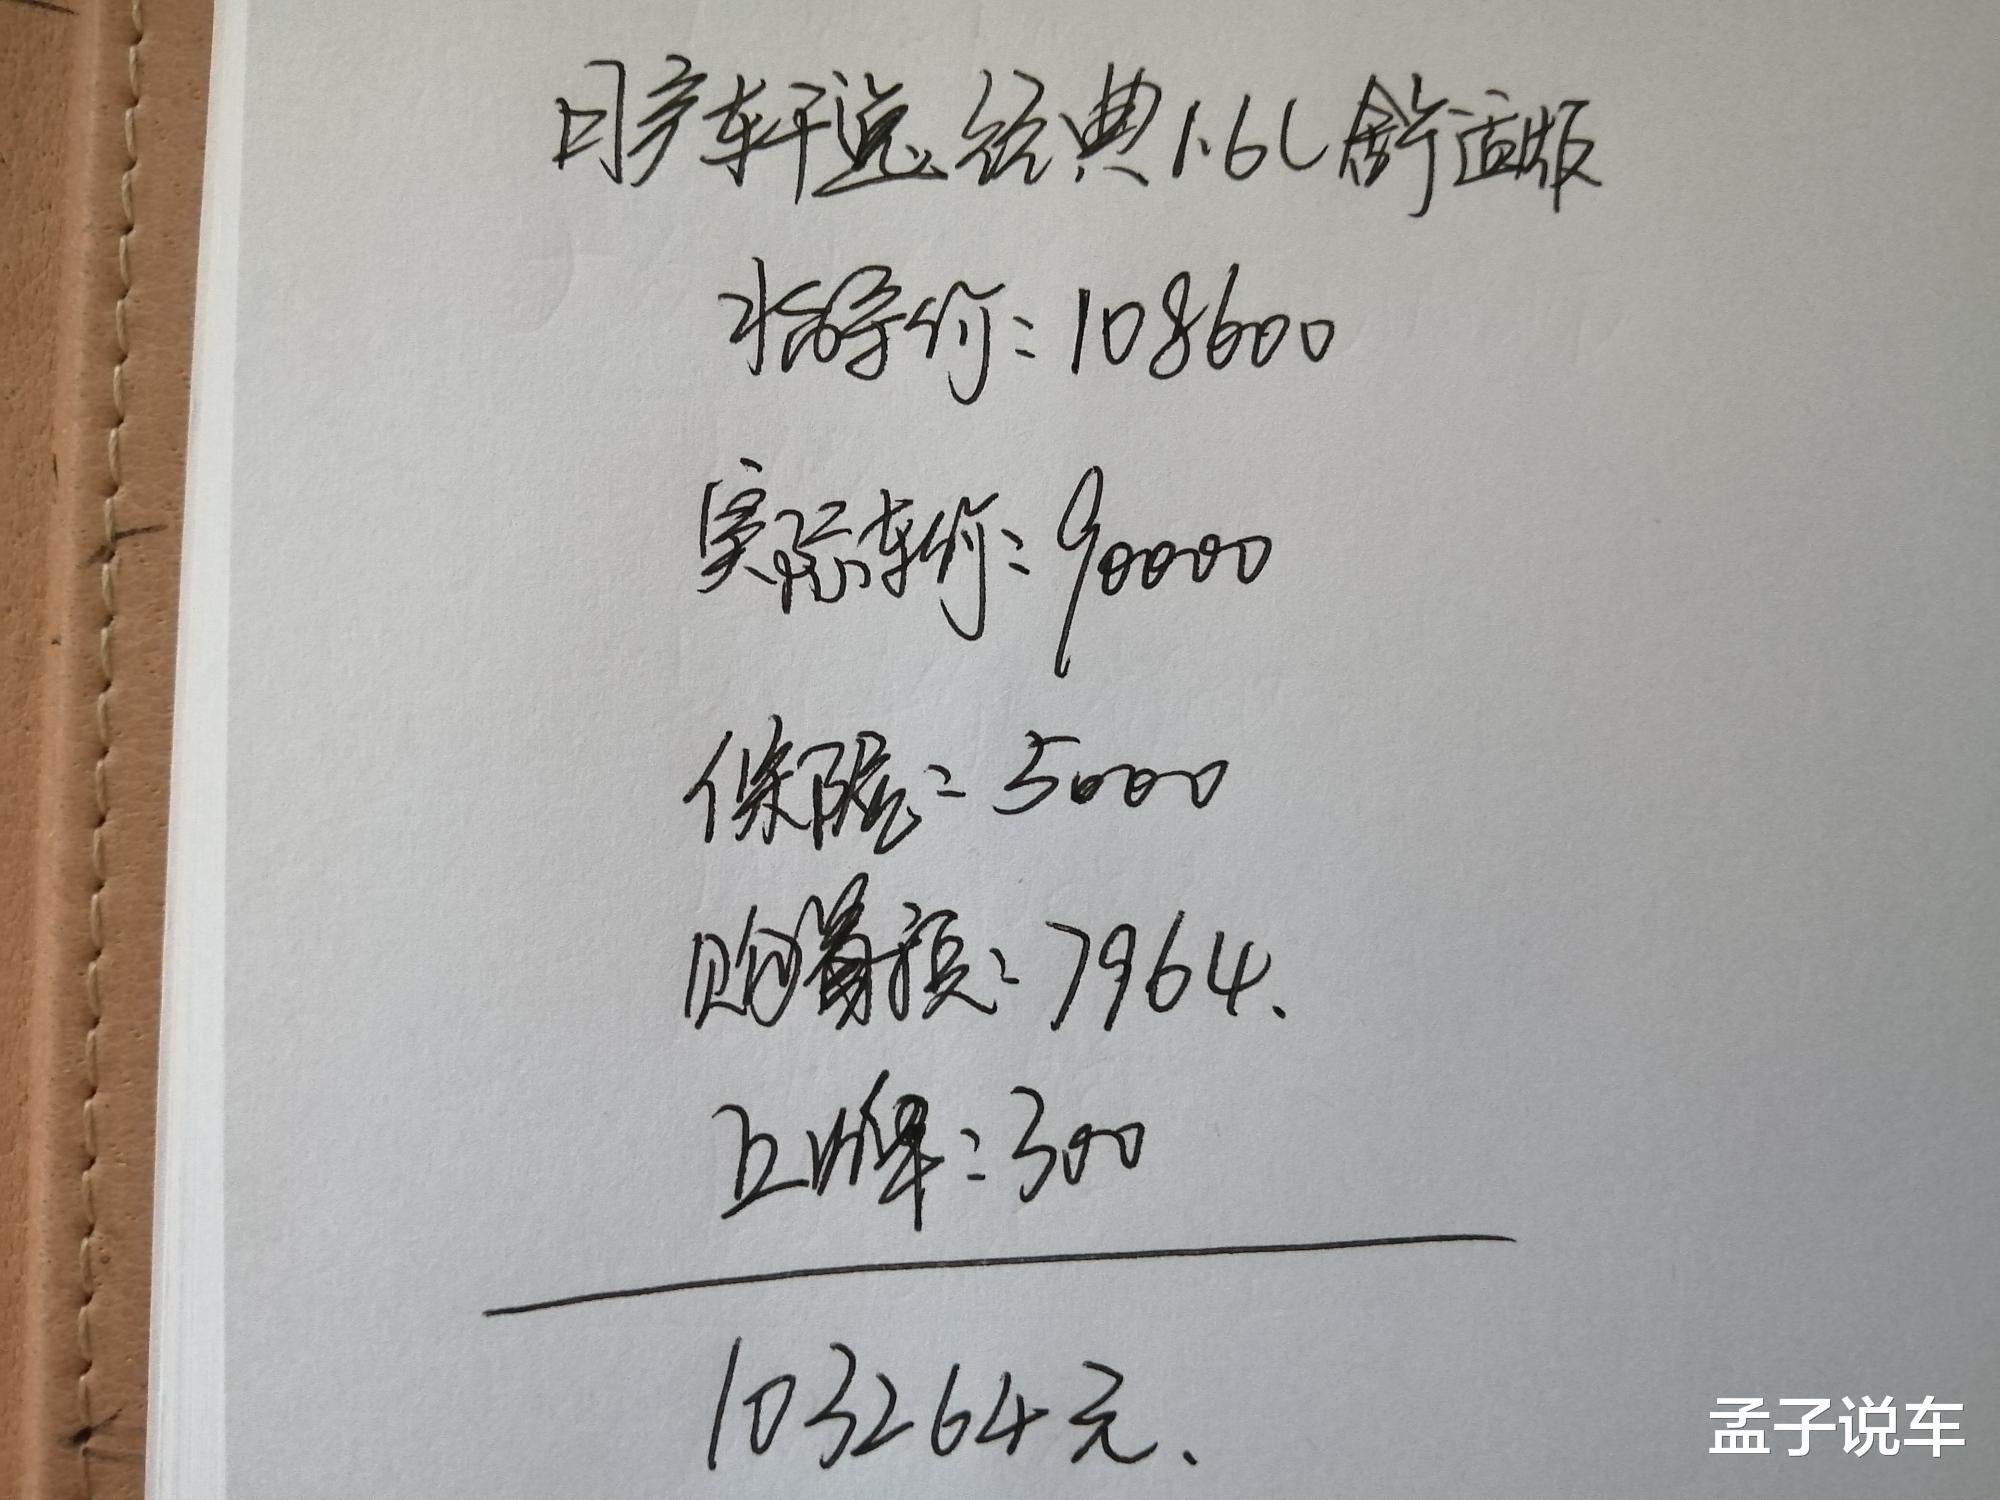 日产轩逸经典1.6L舒适版
指导价：108600
实际车价：90000
保险：5000
购置税：7964.
上牌：300
103264元.
孟子说车